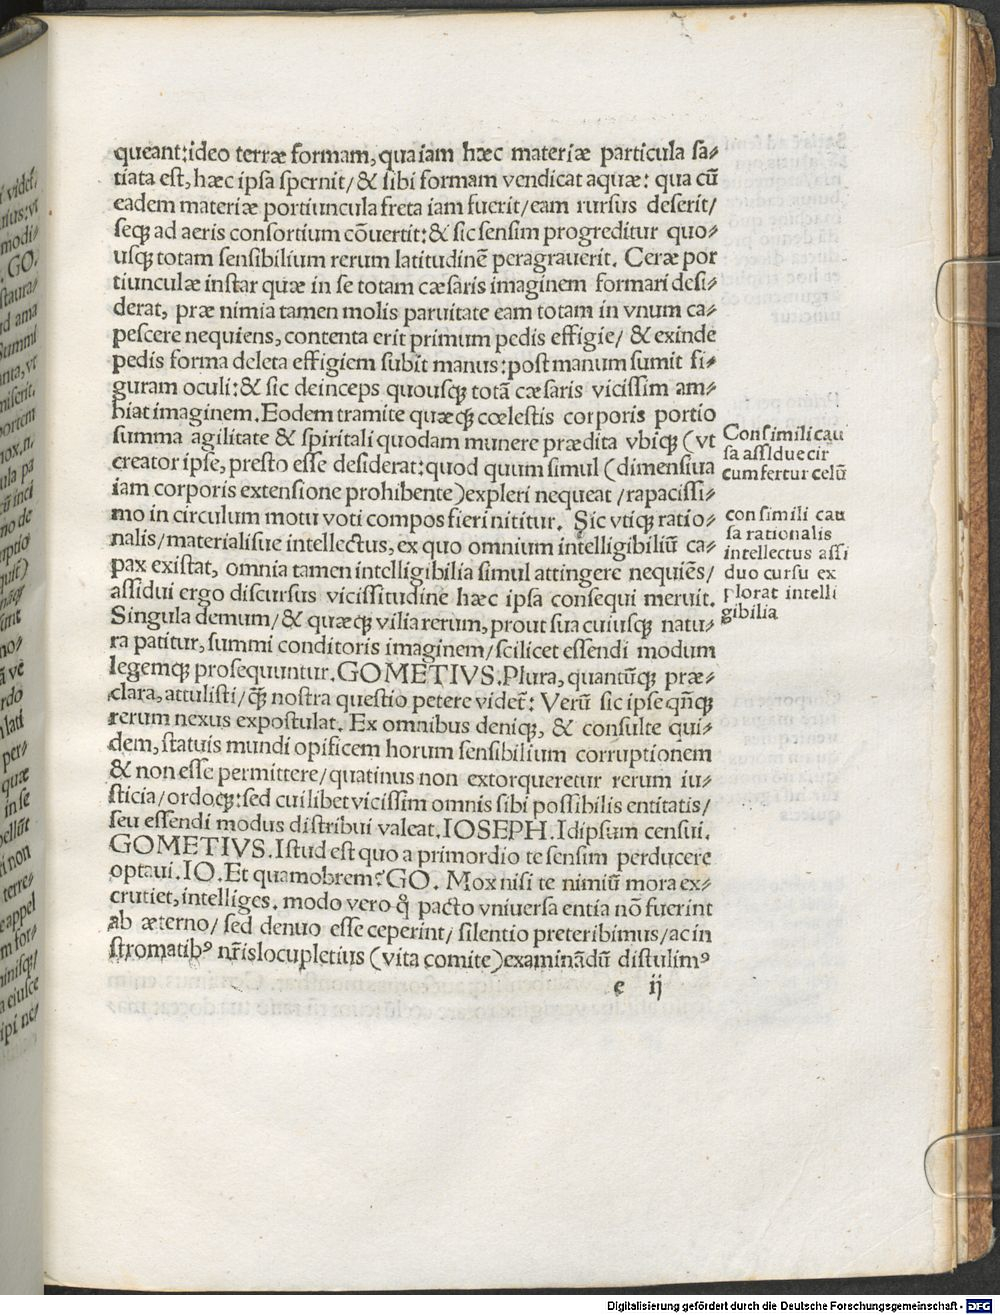 queant:ideo terræ formam, qua iam hæc materiæ particula sa⸗
tiata est, hæc ipsa spernit/ & sibi formam vendicat aquæ: qua cū
eadem materiæ portiuncula freta iam fuerit/ eam rursus deserit/
seqꝫ ad aeris consortium cōuertit: & sic sensim progreditur quo⸗
usqꝫ totam sensibilium rerum latitudinē peragrauerit. Ceræ por
tiunculæ instar quæ in se totam cæsaris imaginem formari desi⸗
derat, præ nimia tamen molis paruitate eam totam in vnum ca⸗
pescere nequiens, contenta erit primum pedis effigie/ & exinde
pedis forma deleta effigiem subit manus: post manum sumit fi⸗
guram oculi: & sic deinceps quousqꝫ totā cæsaris vicissim am⸗
biat imaginem. Eodem tramite quæqꝫ cœlestis corporis portio
summa agilitate & spiritali quodam munere prædita vbiqꝫ (vt
creator ipse, presto esse desiderat: quod quum simul (dimensiua
iam corporis extensione prohibente) expleri nequeat / rapacissi⸗
mo in circulum motu voti compos fieri nititur. Sic vtiqꝫ ratio⸗
nalis/ materialisue intellectus, ex quo omnium intelligibiliū ca⸗
pax existat, omnia tamen intelligibilia simul attingere nequiēs/
assidui ergo discursus vicissitudine hæc ipsa consequi meruit.
Singula demum/ & quæqꝫ vilia rerum, prout sua cuiusqꝫ natu⸗
ra patitur, summi conditoris imaginem/ scilicet essendi modum
legemqꝫ prosequuntur. GOMETIVS. Plura, quantūqꝫ præ⸗
clara, attulisti/ qꝫ̄ nostra questio petere videt̄: Verū sic ipse qñqꝫ
rerum nexus expostulat. Ex omnibus deniqꝫ, & consulte qui⸗
dem, statuis mundi opificem horum sensibilium corruptionem
& non esse permittere/ quatinus non extorqueretur rerum iu⸗
sticia/ ordoqꝫ: sed cuilibet vicissim omnis sibi possibilis entitatis/
seu essendi modus distribui valeat. IOSEPH. Idipsum censui.
GOMETIVS. Istud est quo a primordio te sensim perducere
optaui. IO. Et quamobrem? GO. Mox nisi te nimiū mora ex⸗
crutiet, intelliges. modo vero q̊ pacto vniuersa entia nō fuerint
ab æterno/ sed denuo esse ceperint/ silentio preteribimus/ ac in
stromatibꝰ nr̄is locupletius (vita comite) examinādū distulimꝰ
e ij
Consimili cau
sa assidue cir
cumfertur celū
consimili cau
sa rationalis
intellectus assi
duo cursu ex
plorat intelli
gibilia
Digitalisierung gefördert durch die Deutsche Forschungsgemeinschaft - DFG